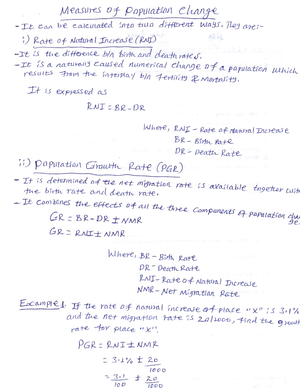 Measures of Population Change
- It can be calculated into two different ways. They are:-
i) Rate of Natural Increase (RNI)
- It is the difference b/n birth and death rates.
- It is a naturally caused numerical change of a population which
results from the interplay b/n fertility & mortality.
It is expressed as
RNI = BR - DR
Where, RNI - Rate of Natural Increase
BR - Birth Rate
DR - Death Rate
ii) Population Growth Rate (PGR)
- It is determined if the net migration rate is available together with
the birth rate and death rate.
- It combines the effects of all the three components of population change
GR = BR - DR ± NMR
GR = RNI ± NMR
Where, BR - Birth Rate
DR - Death Rate
RNI - Rate of Natural Increase
NMR - Net Migration Rate
Example 1. If the rate of natural increase of place "X" is 3.1%
and the net migration rate is 20/1000, find the growth
rate for place "X".
PGR = RNI ± NMR
= 3.1% ± 20/1000
= 3.1/100 ± 20/1000